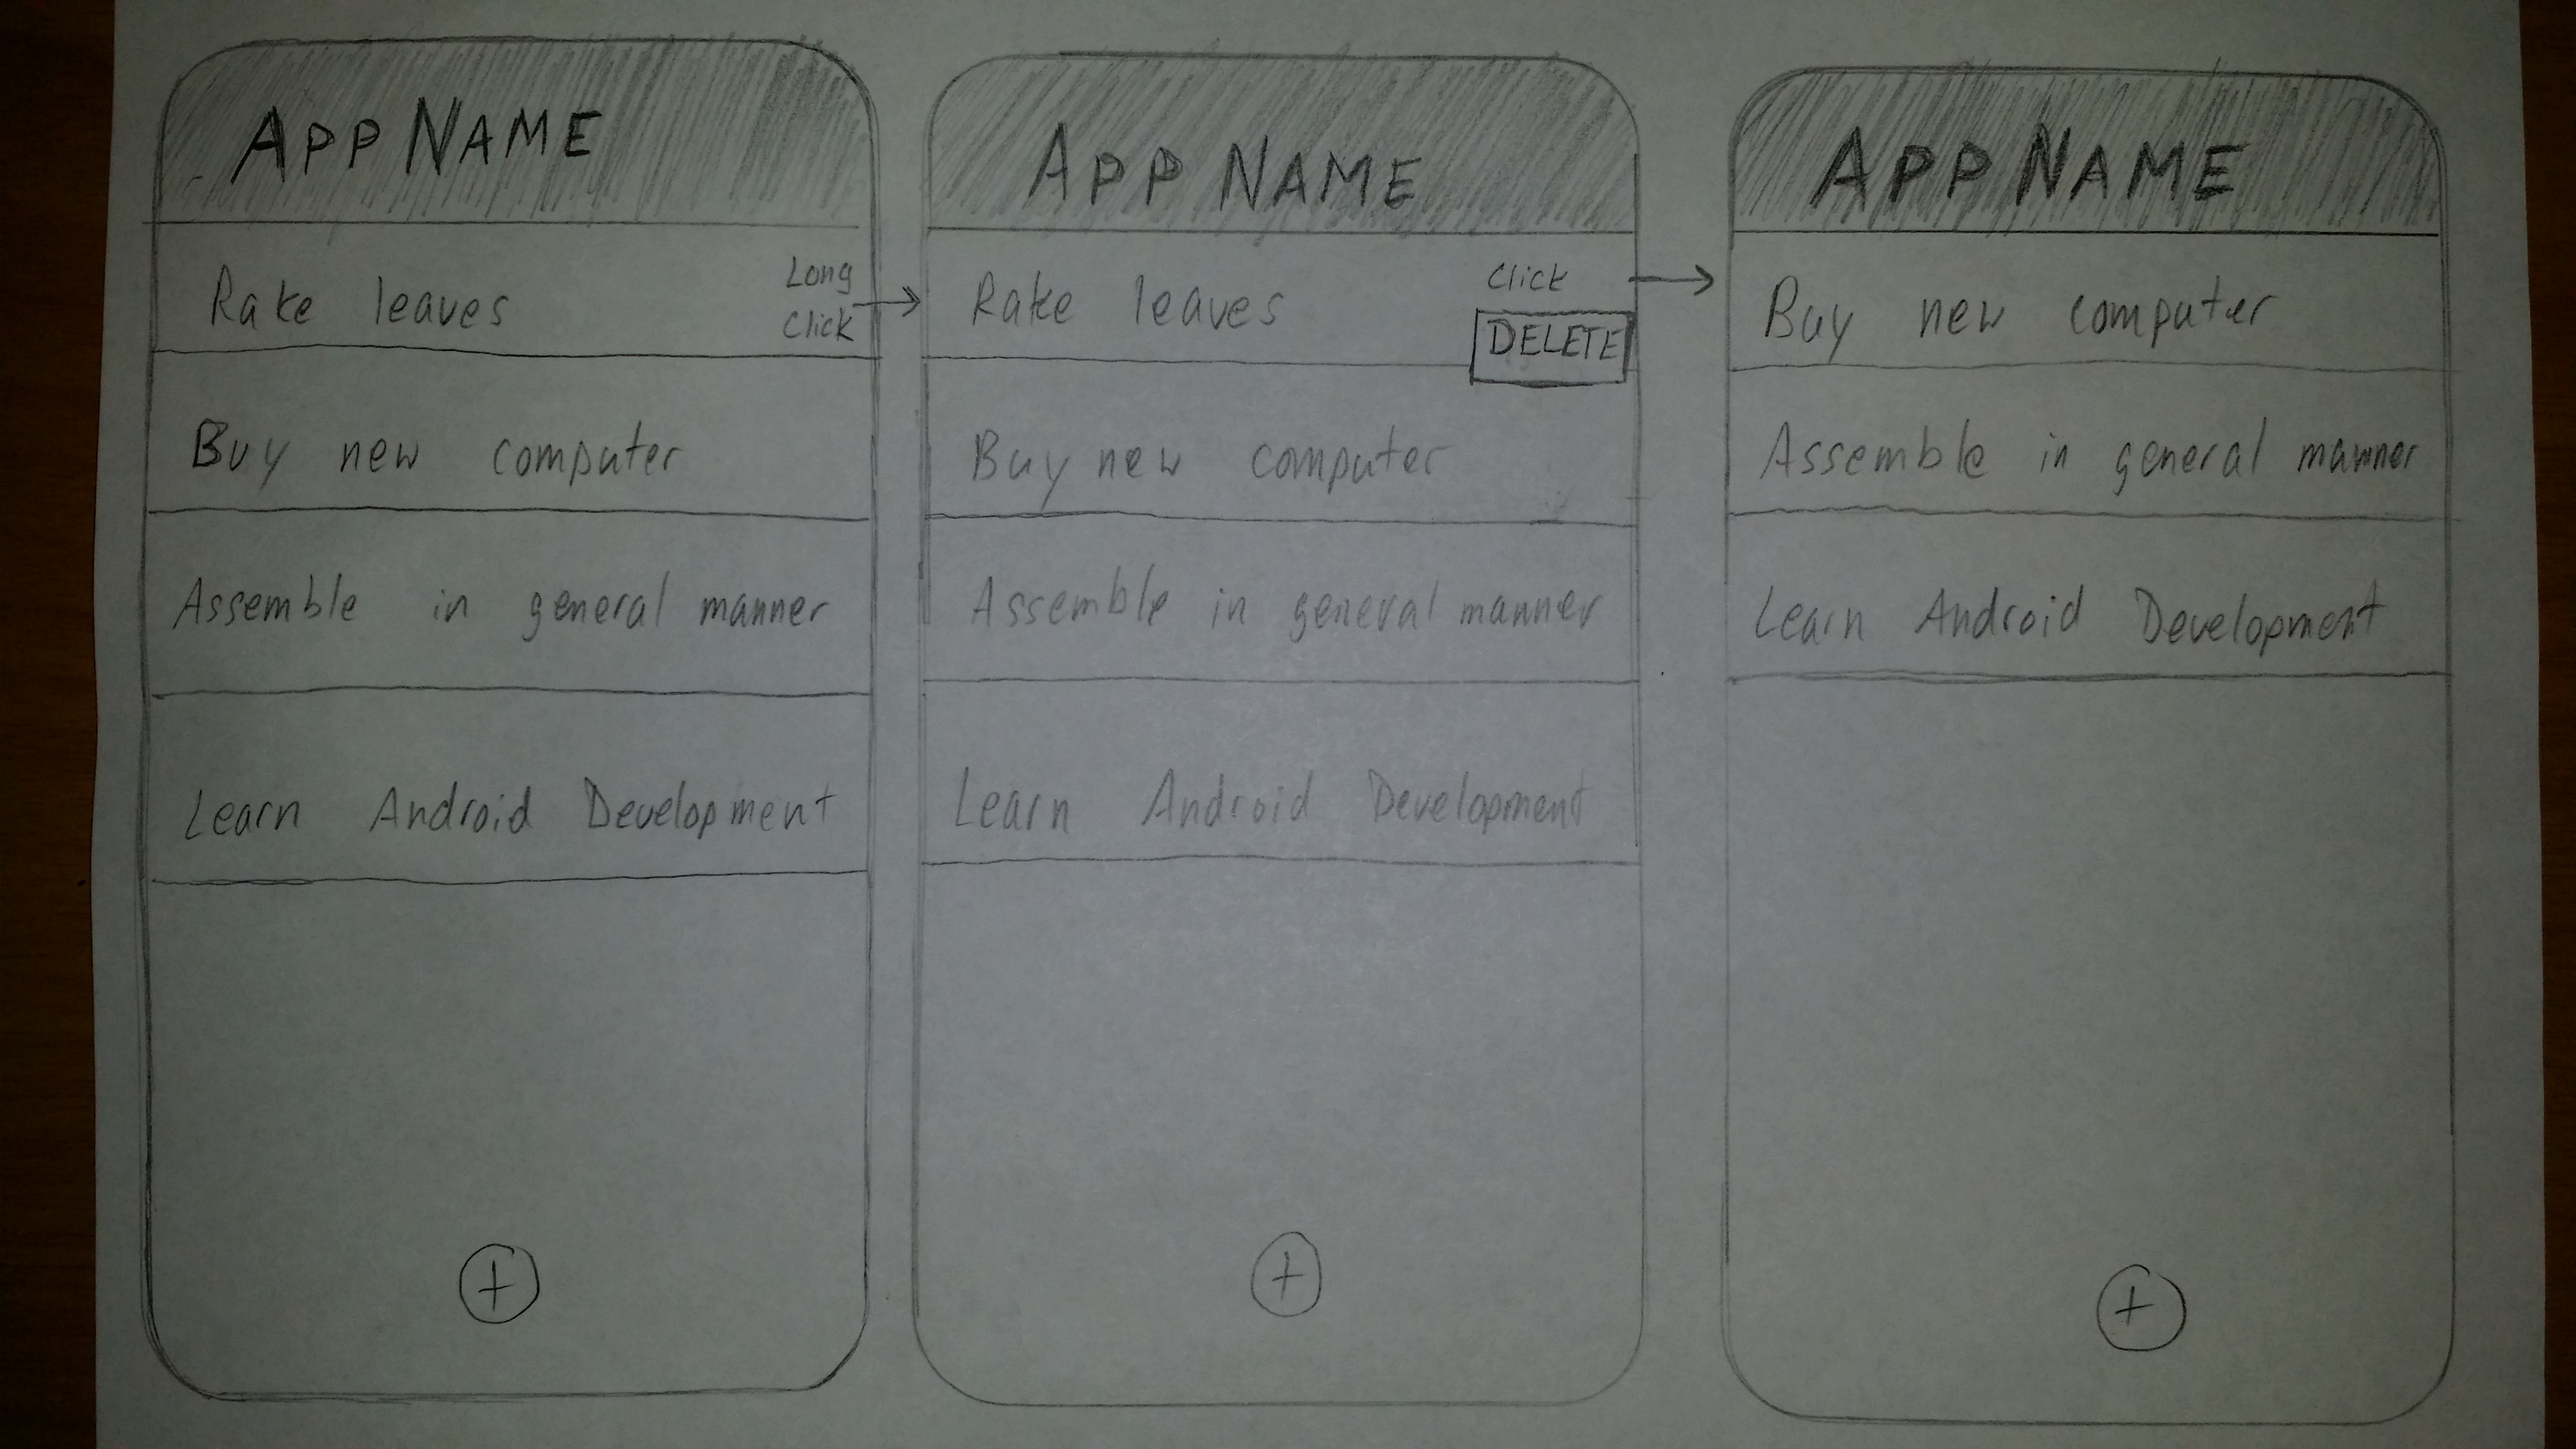 APP NAME
Rake leaves
Long
Click
Buy new computer
Assemble in general manner
Learn Android Development
+
APP NAME
Rake leaves
Click
DELETE
Buy new computer
Assemble in general manner
Learn Android Development
+
APP NAME
Buy new computer
Assemble in general manner
Learn Android Development
+